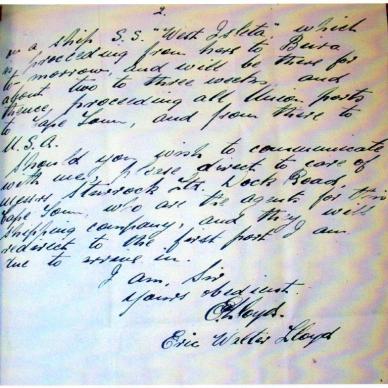 2.
on a ship S.S. "West Isleta" which
is proceeding from here to Beira
to-morrow, and will be there for
about two to three weeks, and
thence, proceeding all Union ports
to Cape Town, and from there to
U.S.A.
Should you wish to communicate
with me, please direct to care of
Messrs Sturrock Ltd. Dock Road,
Cape Town, who are the agents for this
shipping company, and they will
redirect to the first port I am
due to arrive in.
I am, Sir
Yours obedient.
E W Lloyd.
Eric Walter Lloyd